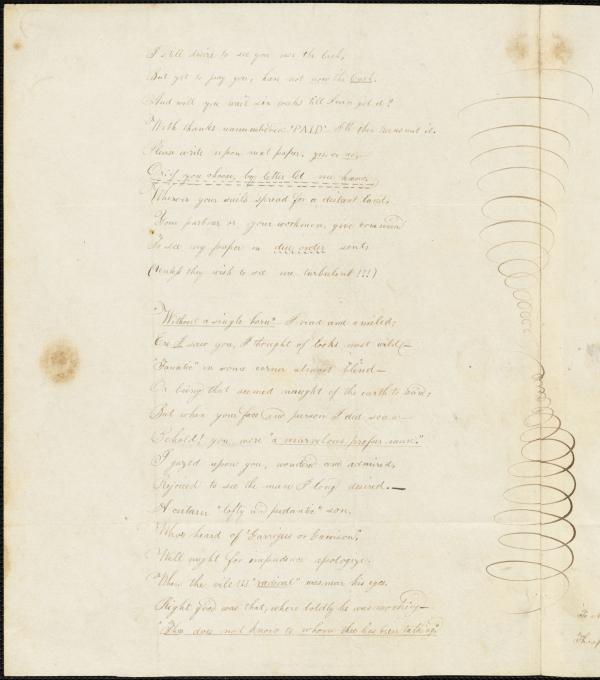 I still desire to see you use the Cash,
But yet to pay you, have not now the Cash.
And will you wait six weeks till I can get it?
With thanks unnumbered, "PAID"
Please write upon next paper, yes or no—
Or if you choose, by letter let me know,
Whene'er your sails spread for a distant land,
Your partner or your workmen, give command
To see my paper in due order sent,
(Unless they wish to see me turbulent!!!)
"Without a single horn" I read and smiled,
Ere I saw you, I thought of looks most wild—
"Fanatic" in some corner almost blind—
Or being that seemed naught of the earth
But when your face and person I did scan—
Behold! you were "a marvelous proper man."
I gazed upon you, wondered and admired,
Rejoiced to see the man I long desired.—
A certain "lofty and pedantic" son,
Who's heard of "Garrigus or Garrison",
Well might for impudence apologize.
When the vile !!! "radical" was near his eyes.
Right good was that, where boldly he was
"Thou does not know to whom thee has been talking"